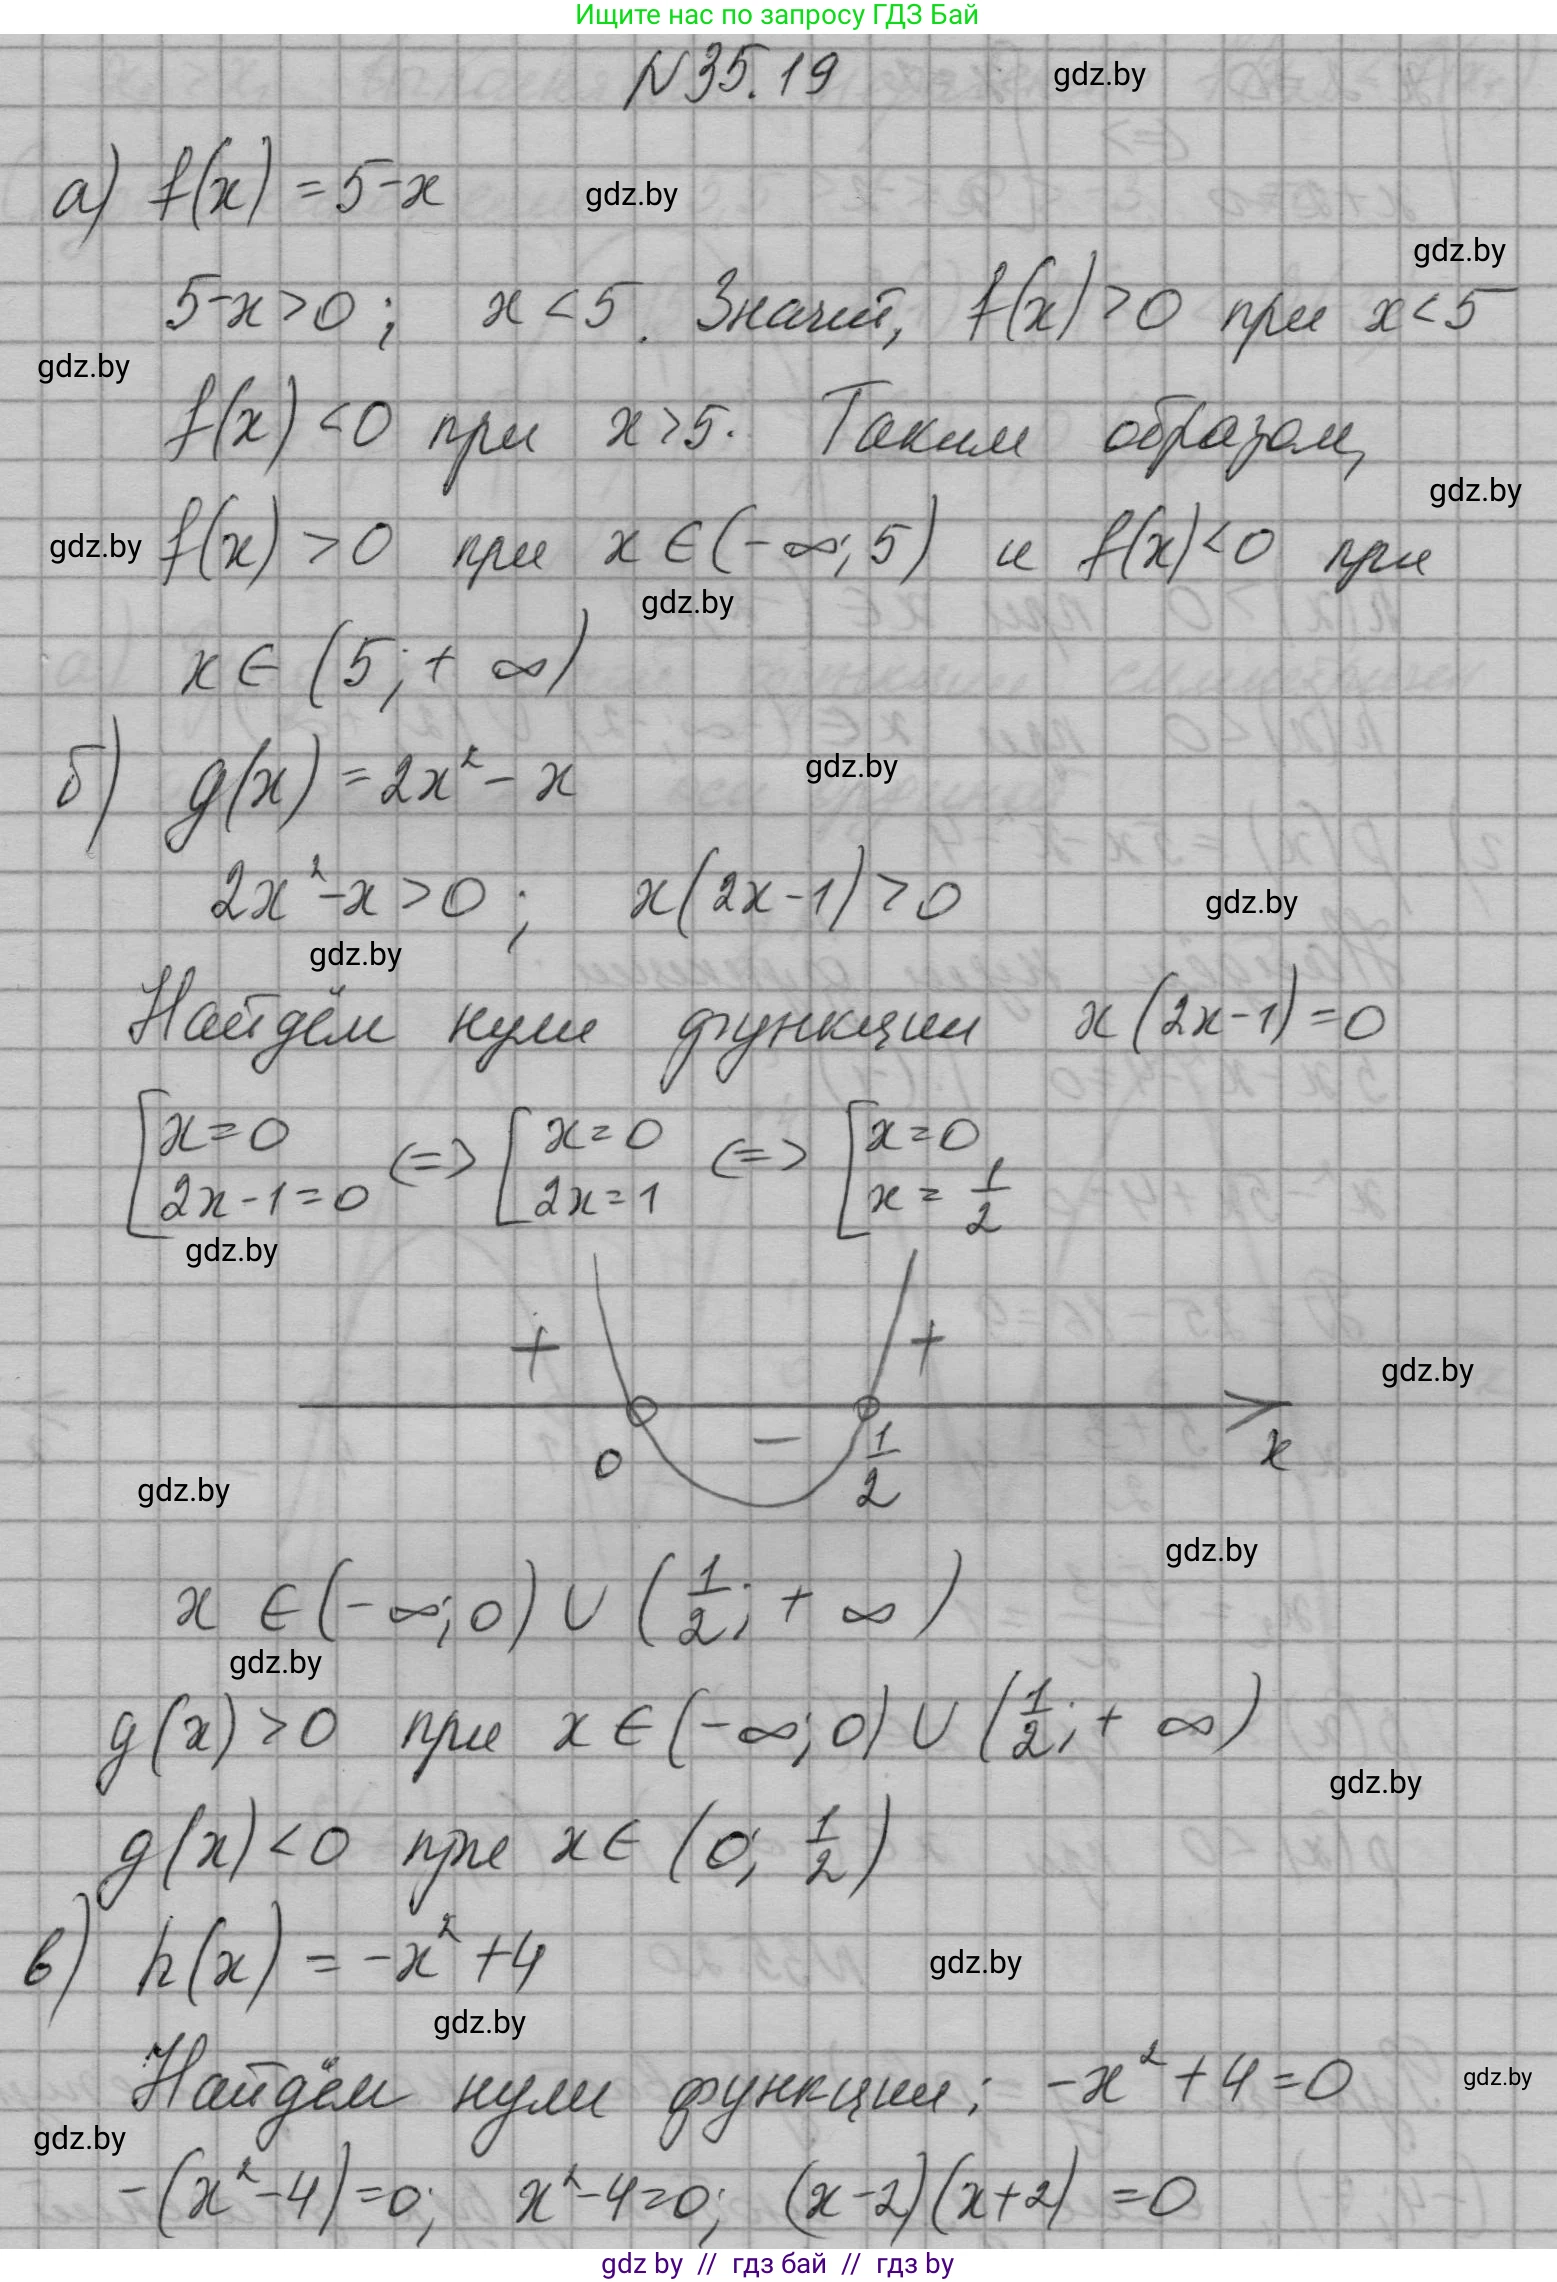 Ищите нас по запросу ГДЗ Бай
N 35.19 gdz.by
а) f(x) = 5-x gdz.by
gdz.by
5-x>0; x<5. Значит, f(x)>0 при x<5
gdz.by
f(x)<0 при x>5. Таким образом,
gdz.by
gdz.by f(x) >0 при x∈(-∞;5) и f(x)<0 при
gdz.by
x∈ (5;+ ∞)
б) g(x) = 2x² - x gdz.by
2x²-x>0; x(2x-1)>0 gdz.by
gdz.by
Найдём нули функции x(2x-1)=0
[x=0 (=> [x=0 (=> [x=0
2x-1=0 2x=1 x= 1/2
gdz.by
+ +
gdz.by
− x
0 1/2
gdz.by
gdz.by
x ∈(-∞;0) ∪ (1/2;+ ∞)
gdz.by
g(x)>0 при x∈(-∞;0) ∪ (1/2;+ ∞)
gdz.by
g(x)<0 при x∈ (0; 1/2)
в) h(x) = -x²+4 gdz.by
gdz.by
Найдём нули функции: -x²+4=0 gdz.by
gdz.by
-(x²-4)=0; x²-4=0; (x-2)(x+2) =0
gdz by // гдз бай // гдз by